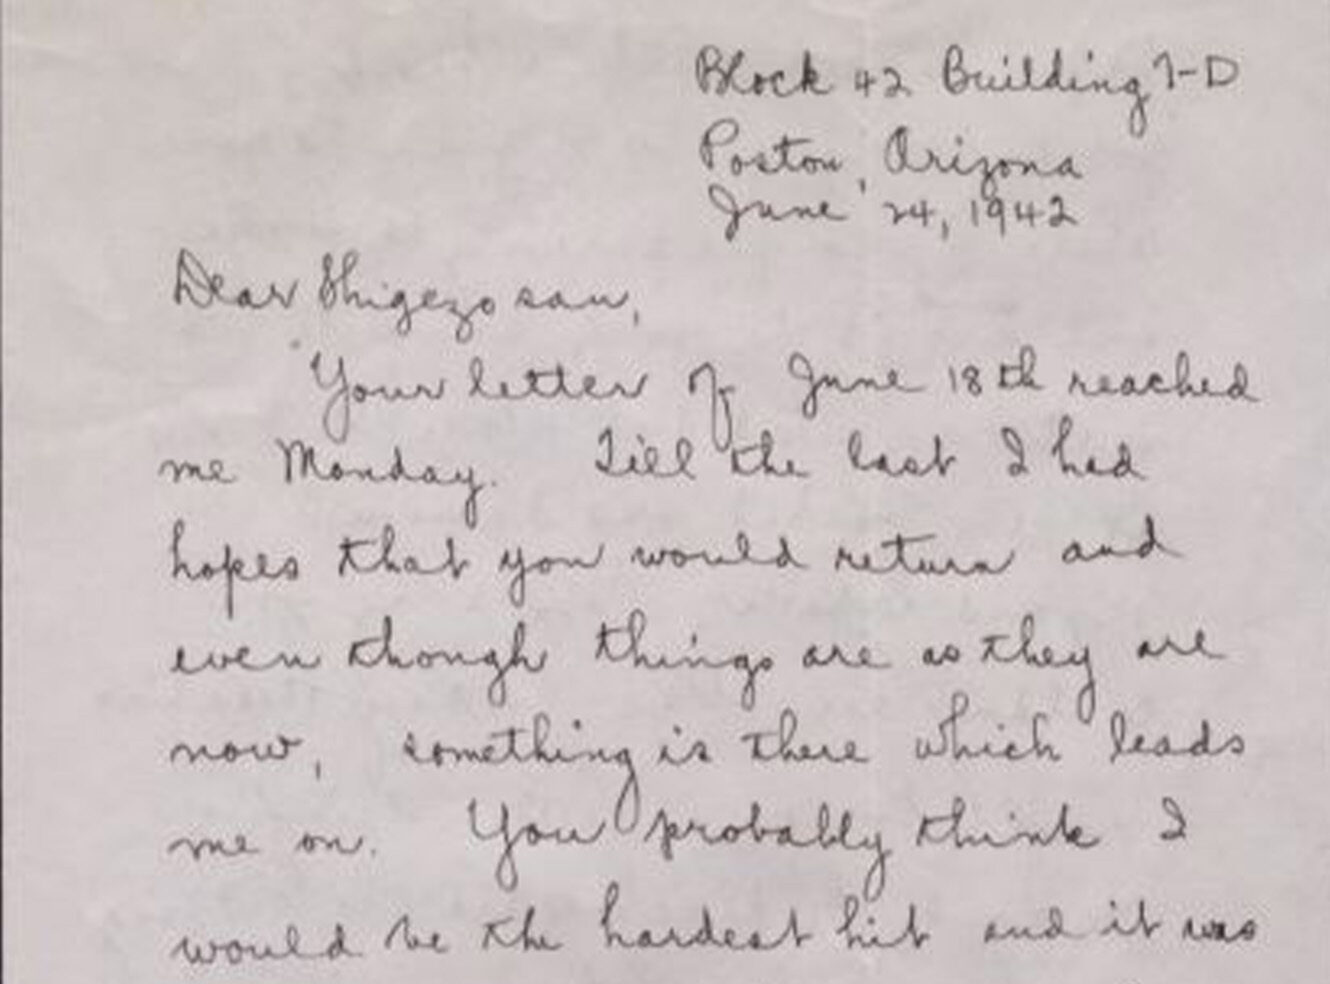 Block 42 Building 7-D
Poston, Arizona
June 24, 1942
Dear Shigezo san,
Your letter of June 18th reached
me Monday. Till the last I had
hopes that you would return and
even though things are as they are
now, something is there which leads
me on. You probably think I
would be the hardest hit and it was